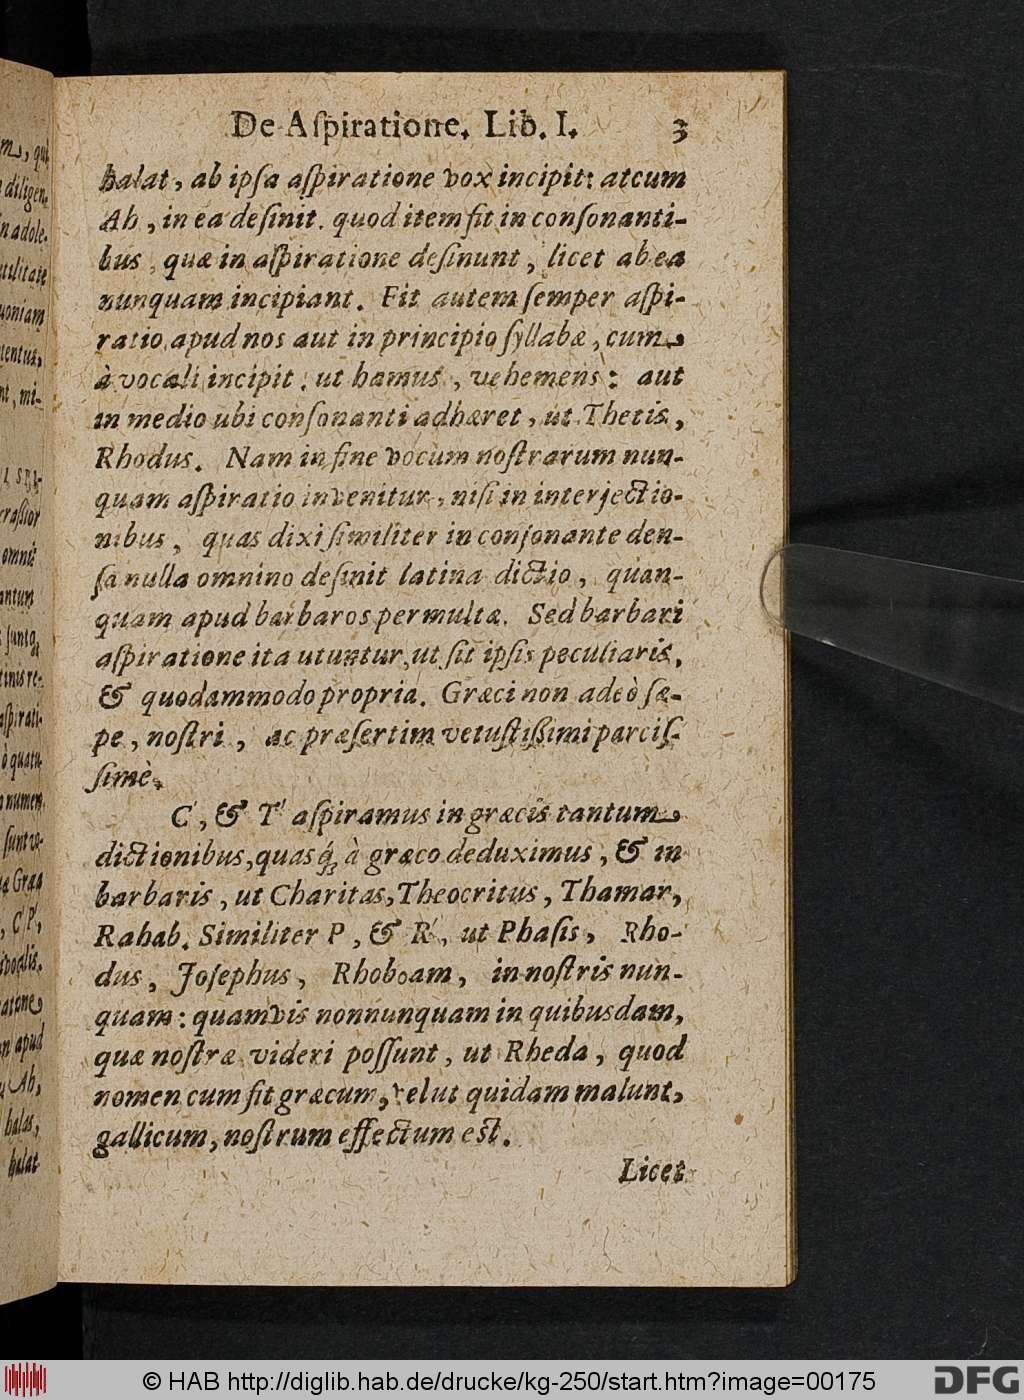 De Aſpiratione. Lib. I. 3
halat, ab ipſa aſpiratione vox incipit: at cum
Ah, in ea deſinit. quod item fit in conſonanti-
bus, quæ in aſpiratione deſinunt, licet ab ea
nunquam incipiant. Fit autem ſemper aſpi-
ratio apud nos aut in principio ſyllabæ, cum
à vocali incipit, ut hamus, vehemens: aut
in medio ubi conſonanti adhæret, ut Thetis,
Rhodus. Nam in fine vocum noſtrarum nun-
quam aſpiratio invenitur, niſi in interjectio-
nibus, quas dixi ſimiliter in conſonante den-
ſa nulla omnino deſinit latina dictio, quan-
quam apud barbaros permultæ. Sed barbari
aſpiratione ita utuntur, ut ſit ipſis peculiaris,
& quodammodo propria. Græci non adeò ſæ-
pe, noſtri, ac præſertim vetuſtißimi parciſ-
ſimè.
C, & T aſpiramus in græcis tantum
dictionibus, quasq́ue à græco deduximus, & in
barbaris, ut Charitas, Theocritus, Thamar,
Rahab. Similiter P, & R, ut Phaſis, Rho-
dus, Joſephus, Rhoboam, in noſtris nun-
quam: quamvis nonnunquam in quibusdam,
quæ noſtræ videri poſſunt, ut Rheda, quod
nomen cum ſit græcum, velut quidam malunt,
gallicum, noſtrum effectum eſt.
Licet
© HAB http://diglib.hab.de/drucke/kg-250/start.htm?image=00175
DFG